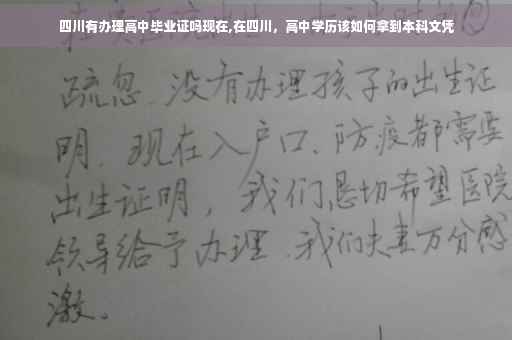 四川有办理高中毕业证吗现在,在四川，高中学历该如何拿到本科文凭
疏忽、没有办理孩子的出生证
明、现在入户口、防疫都需要
出生证明，我们恳切希望医院
领导给予办理、我们夫妻万分感
激。